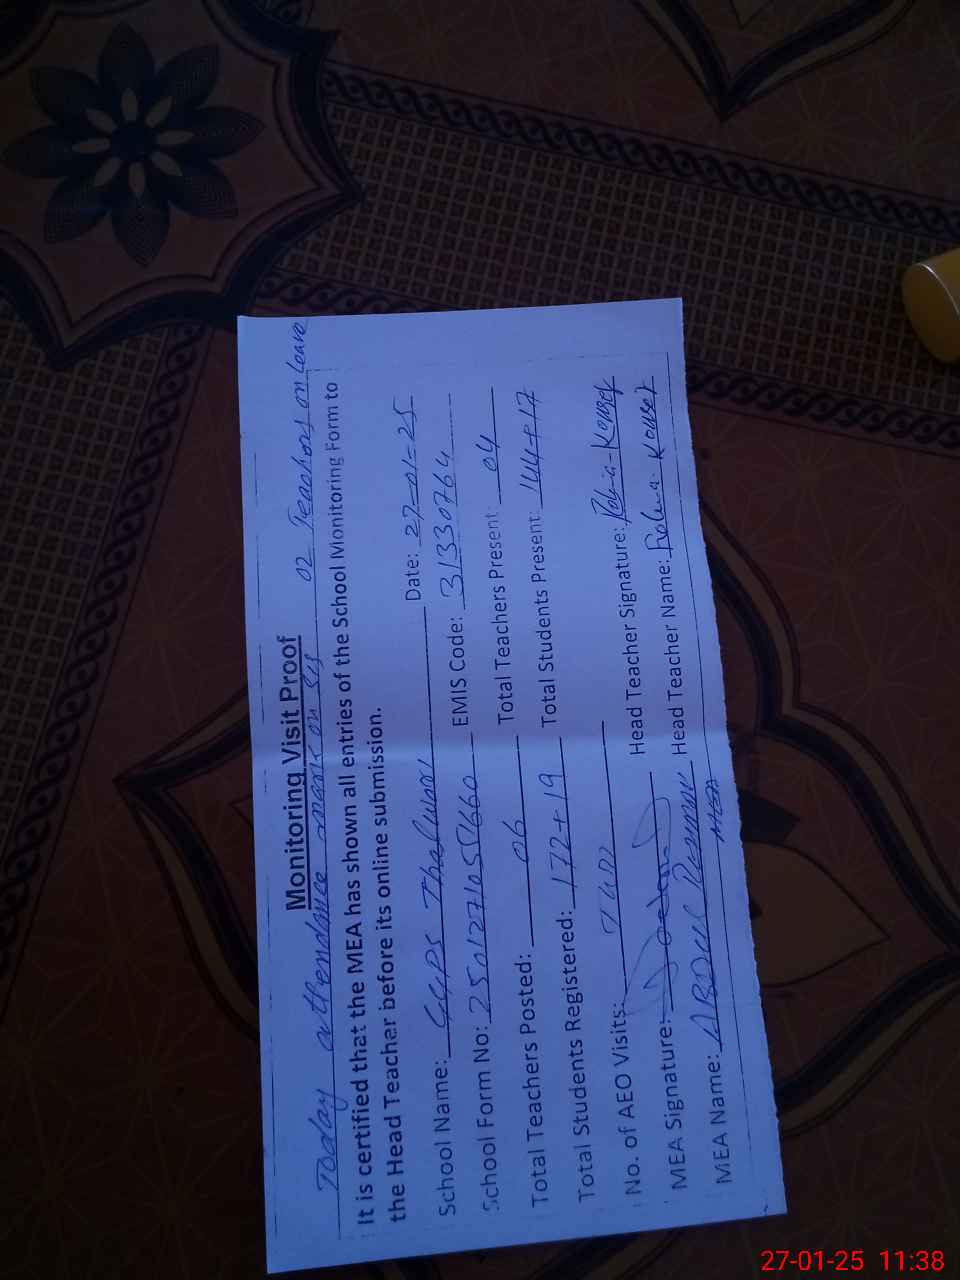 Monitoring Visit Proof
Today attendance mark on SIS 02 Teachers on leave
It is certified that the MEA has shown all entries of the School Monitoring Form to
the Head Teacher before its online submission.
School Name: GGPS Date: 27-01-25
School Form No: EMIS Code: 31330764
Total Teachers Posted: 06 Total Teachers Present: 04
Total Students Registered: 172+19 Total Students Present: 144+17
No. of AEO Visits:
MEA Signature: Head Teacher Signature: Kousar
MEA Name: ABDUL Head Teacher Name: Kousar
MEA
27-01-25 11:38